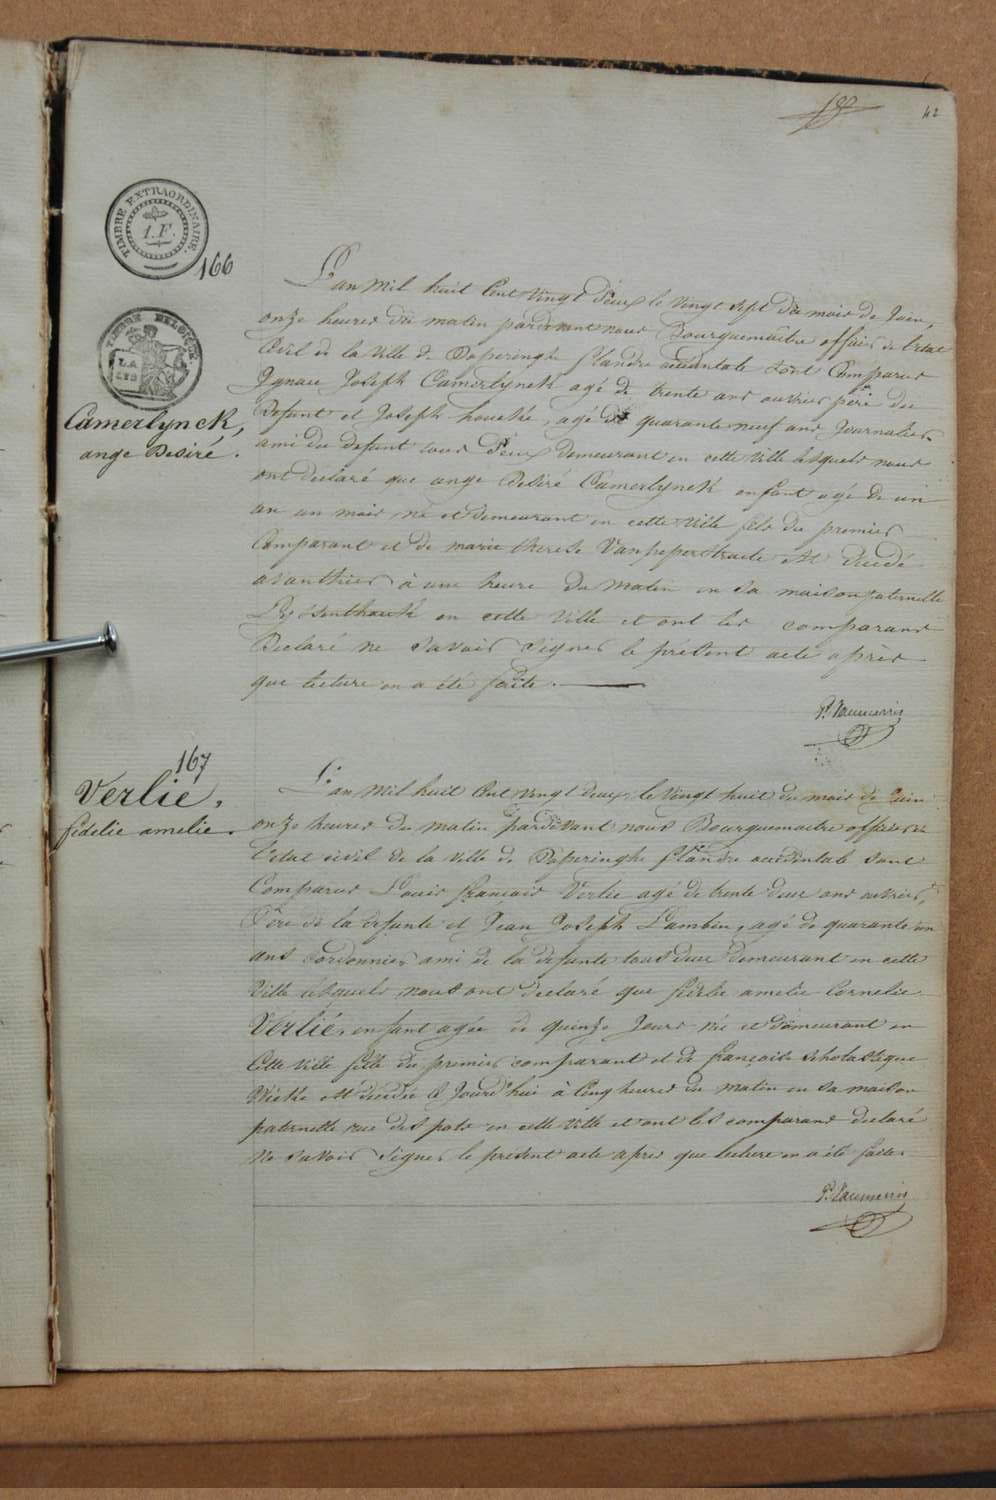 42
TIMBRE EXTRAORDINAIRE.
1.F.
166
TIMBRE BELGIQUE.
LA
LYS
Camerlynck,
ange Desiré.
L'an Mil huit Cent vingt Deux le vingt Sept du mois de Juin,
onze heures du matin pardevant nous Bourguemaitre officier de l'etat
Civil de la Ville de Poperinghe flandre occidentale sont Comparus
Ignace Joseph Camerlynck agé de trente ans ouvrier pere du
Defunt et Joseph houcke, agé de quarante neuf ans Journalier
ami du defunt tous Deux Demeurant en cette Ville lesquels nous
ont declaré que ange Desiré Camerlynck enfant agé de un
an un mois né et demeurant en cette Ville fils du premier
Comparant et de marie therese Vanpeperstraete est Decedé
avanthier à une heure du matin en sa maison paternelle
en cette Ville et ont les comparans
Declaré ne Savoir Signer le présent acte après
que lecture en a été faite.
P. Vanmerris
167
Verlié,
fidelie amelie.
L'an Mil huit Cent vingt deux, le vingt huit du mois de Juin
onze heures du matin pardevant nous Bourguemaitre officier de
l'etat civil de la Ville de Poperinghe flandre occidentale sont
Comparus Louis françois Verlie agé de trente deux ans ouvrier,
Père de la defunte et Jean Joseph Lambin, agé de quarante un
ans Cordonnier ami de la defunte tous deux demeurant en cette
Ville lesquels nous ont declaré que fidelie amelie Cornelie
Verlié, enfant agée de quinze Jours née et demeurant en
Cette Ville fille du premier comparant et de françoise Scholastique
est decedée à cinq heures du matin en sa maison
paternelle rue des pots en cette Ville et ont les comparans declaré
Ne Savoir Signer le présent acte après que lecture en a été faite.
P. Vanmerris